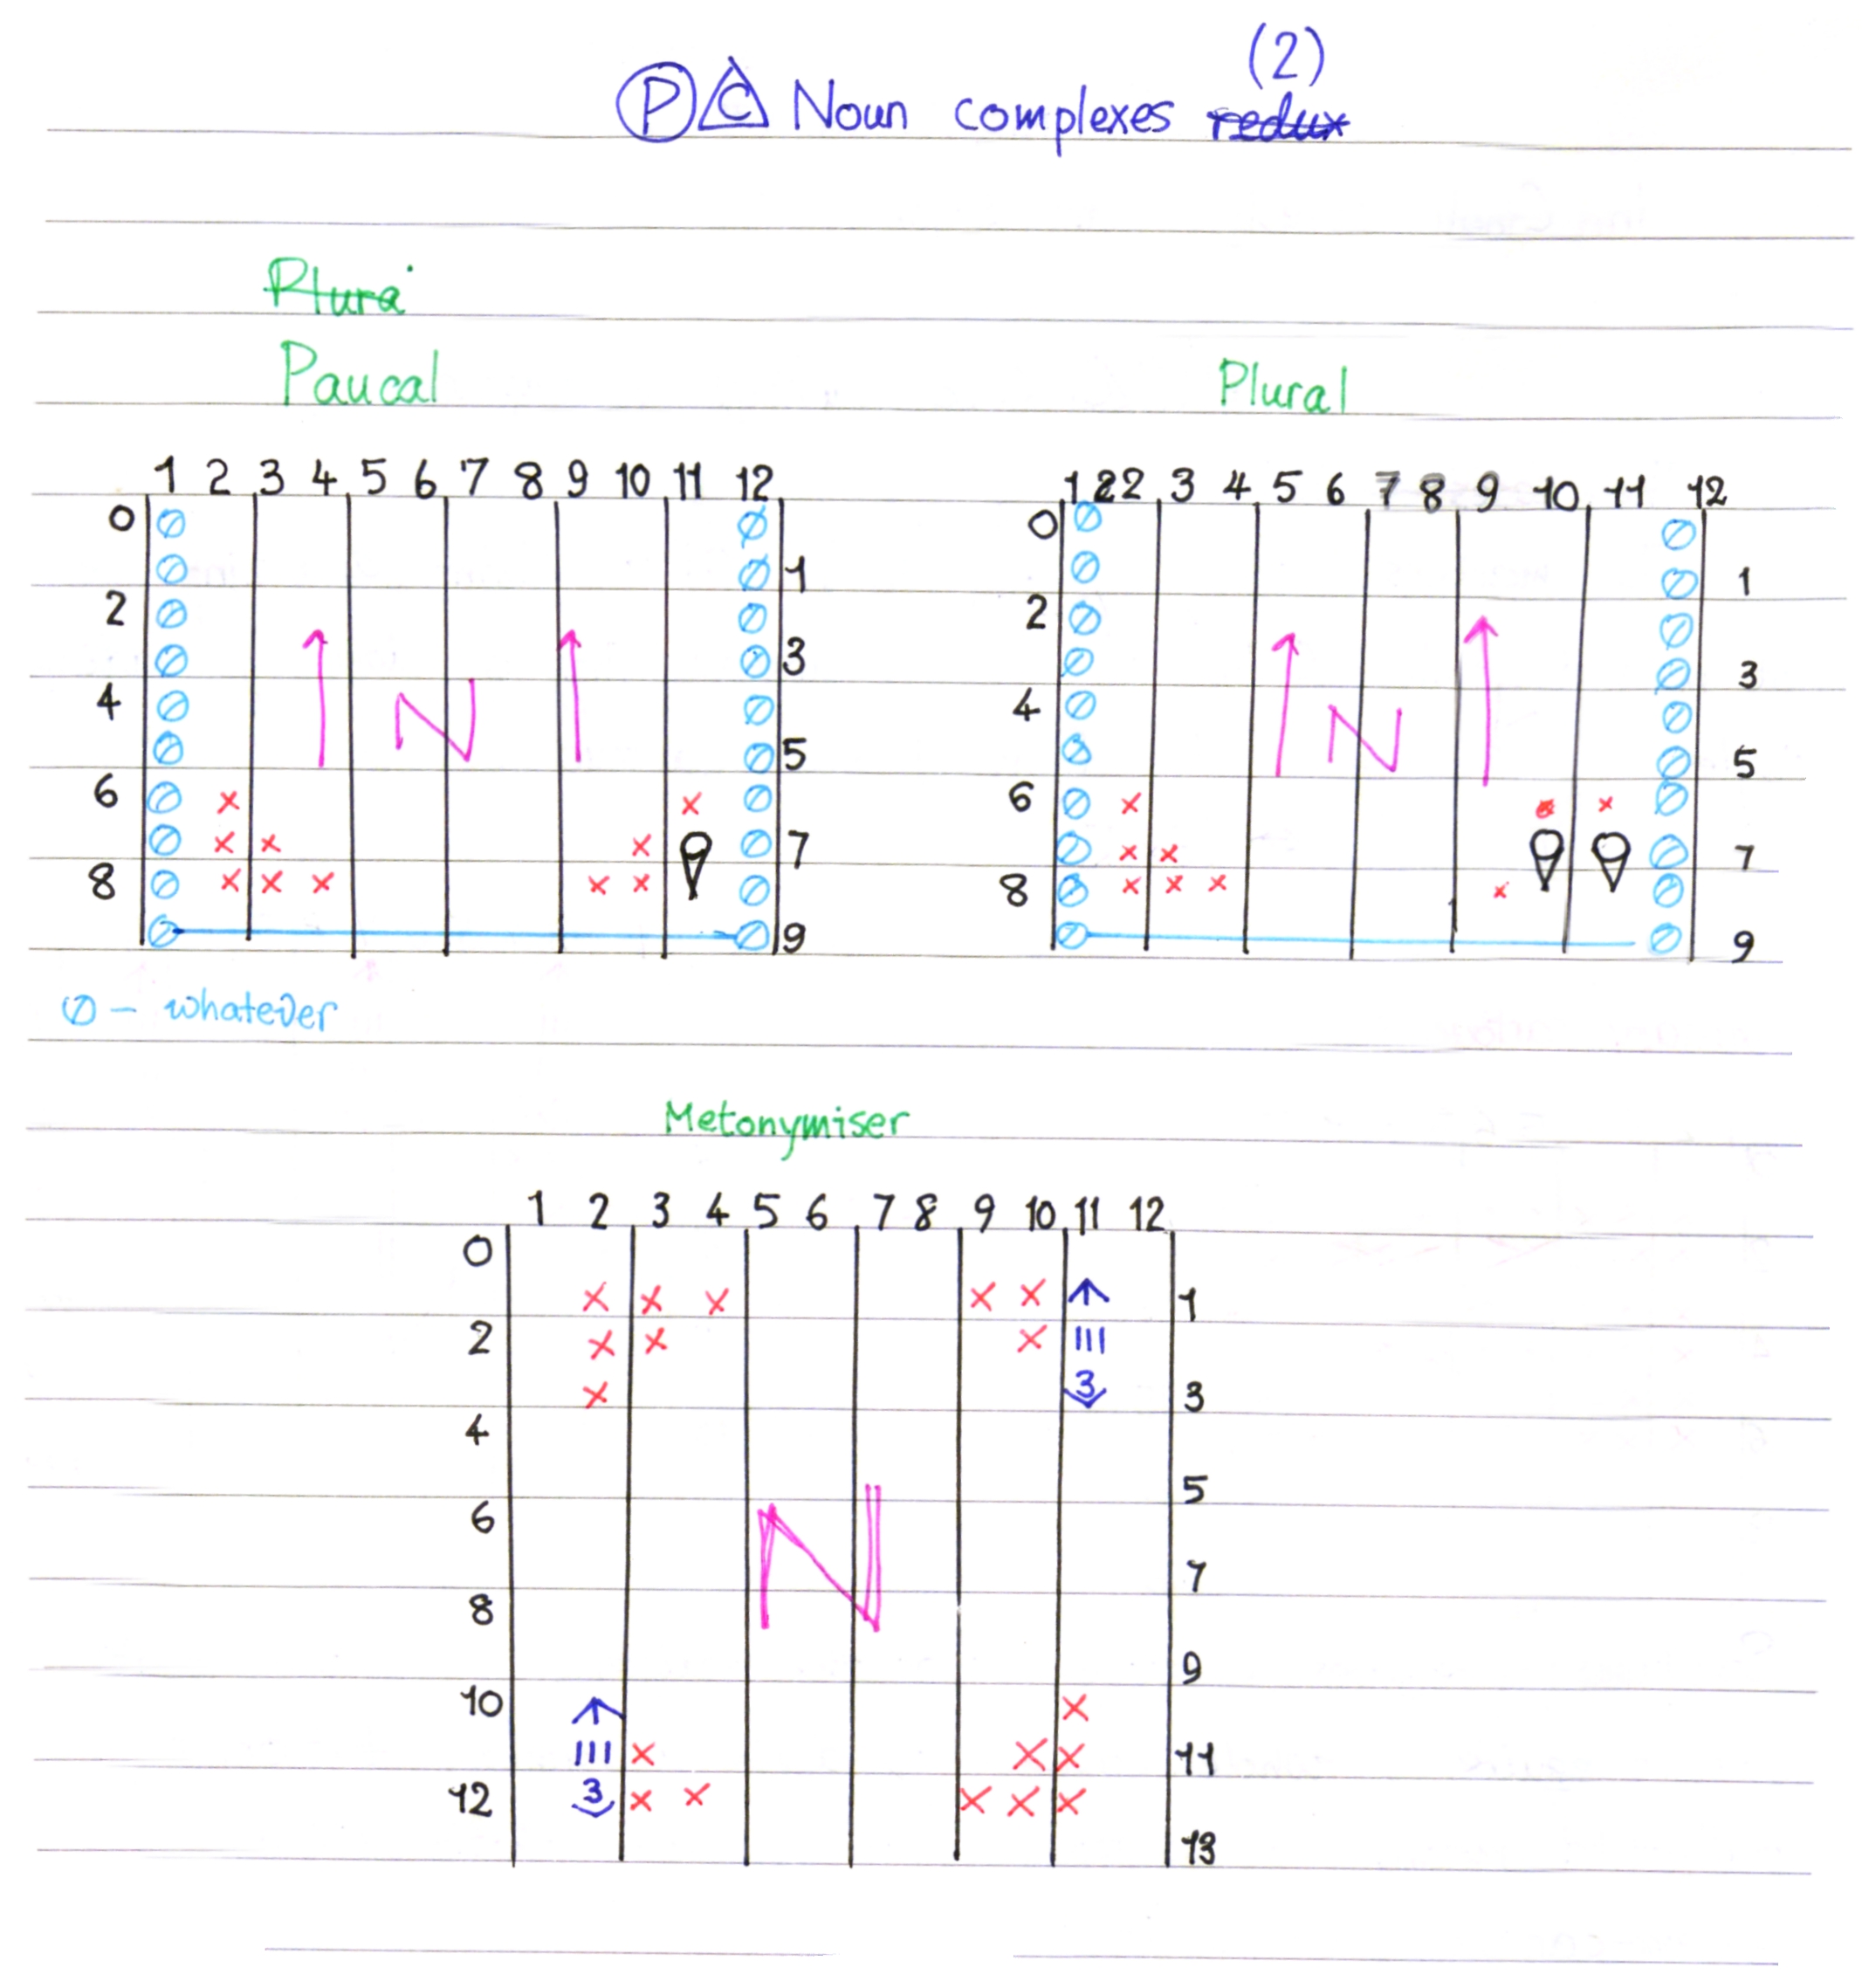 (2)
P C Noun complexes redux
Plura
Paucal Plural
1 2 3 4 5 6 7 8 9 10 11 12
0 1 2 3 4 5 6 7 8 9
N
1 2 2 3 4 5 6 7 8 9 10 11 12
0 1 2 3 4 5 6 7 8 9
N
∅ – whatever
Metonymiser
1 2 3 4 5 6 7 8 9 10 11 12
0
1
2 III
3 3
4
5
6
N
7
8
9
10
III 11
12 3
13